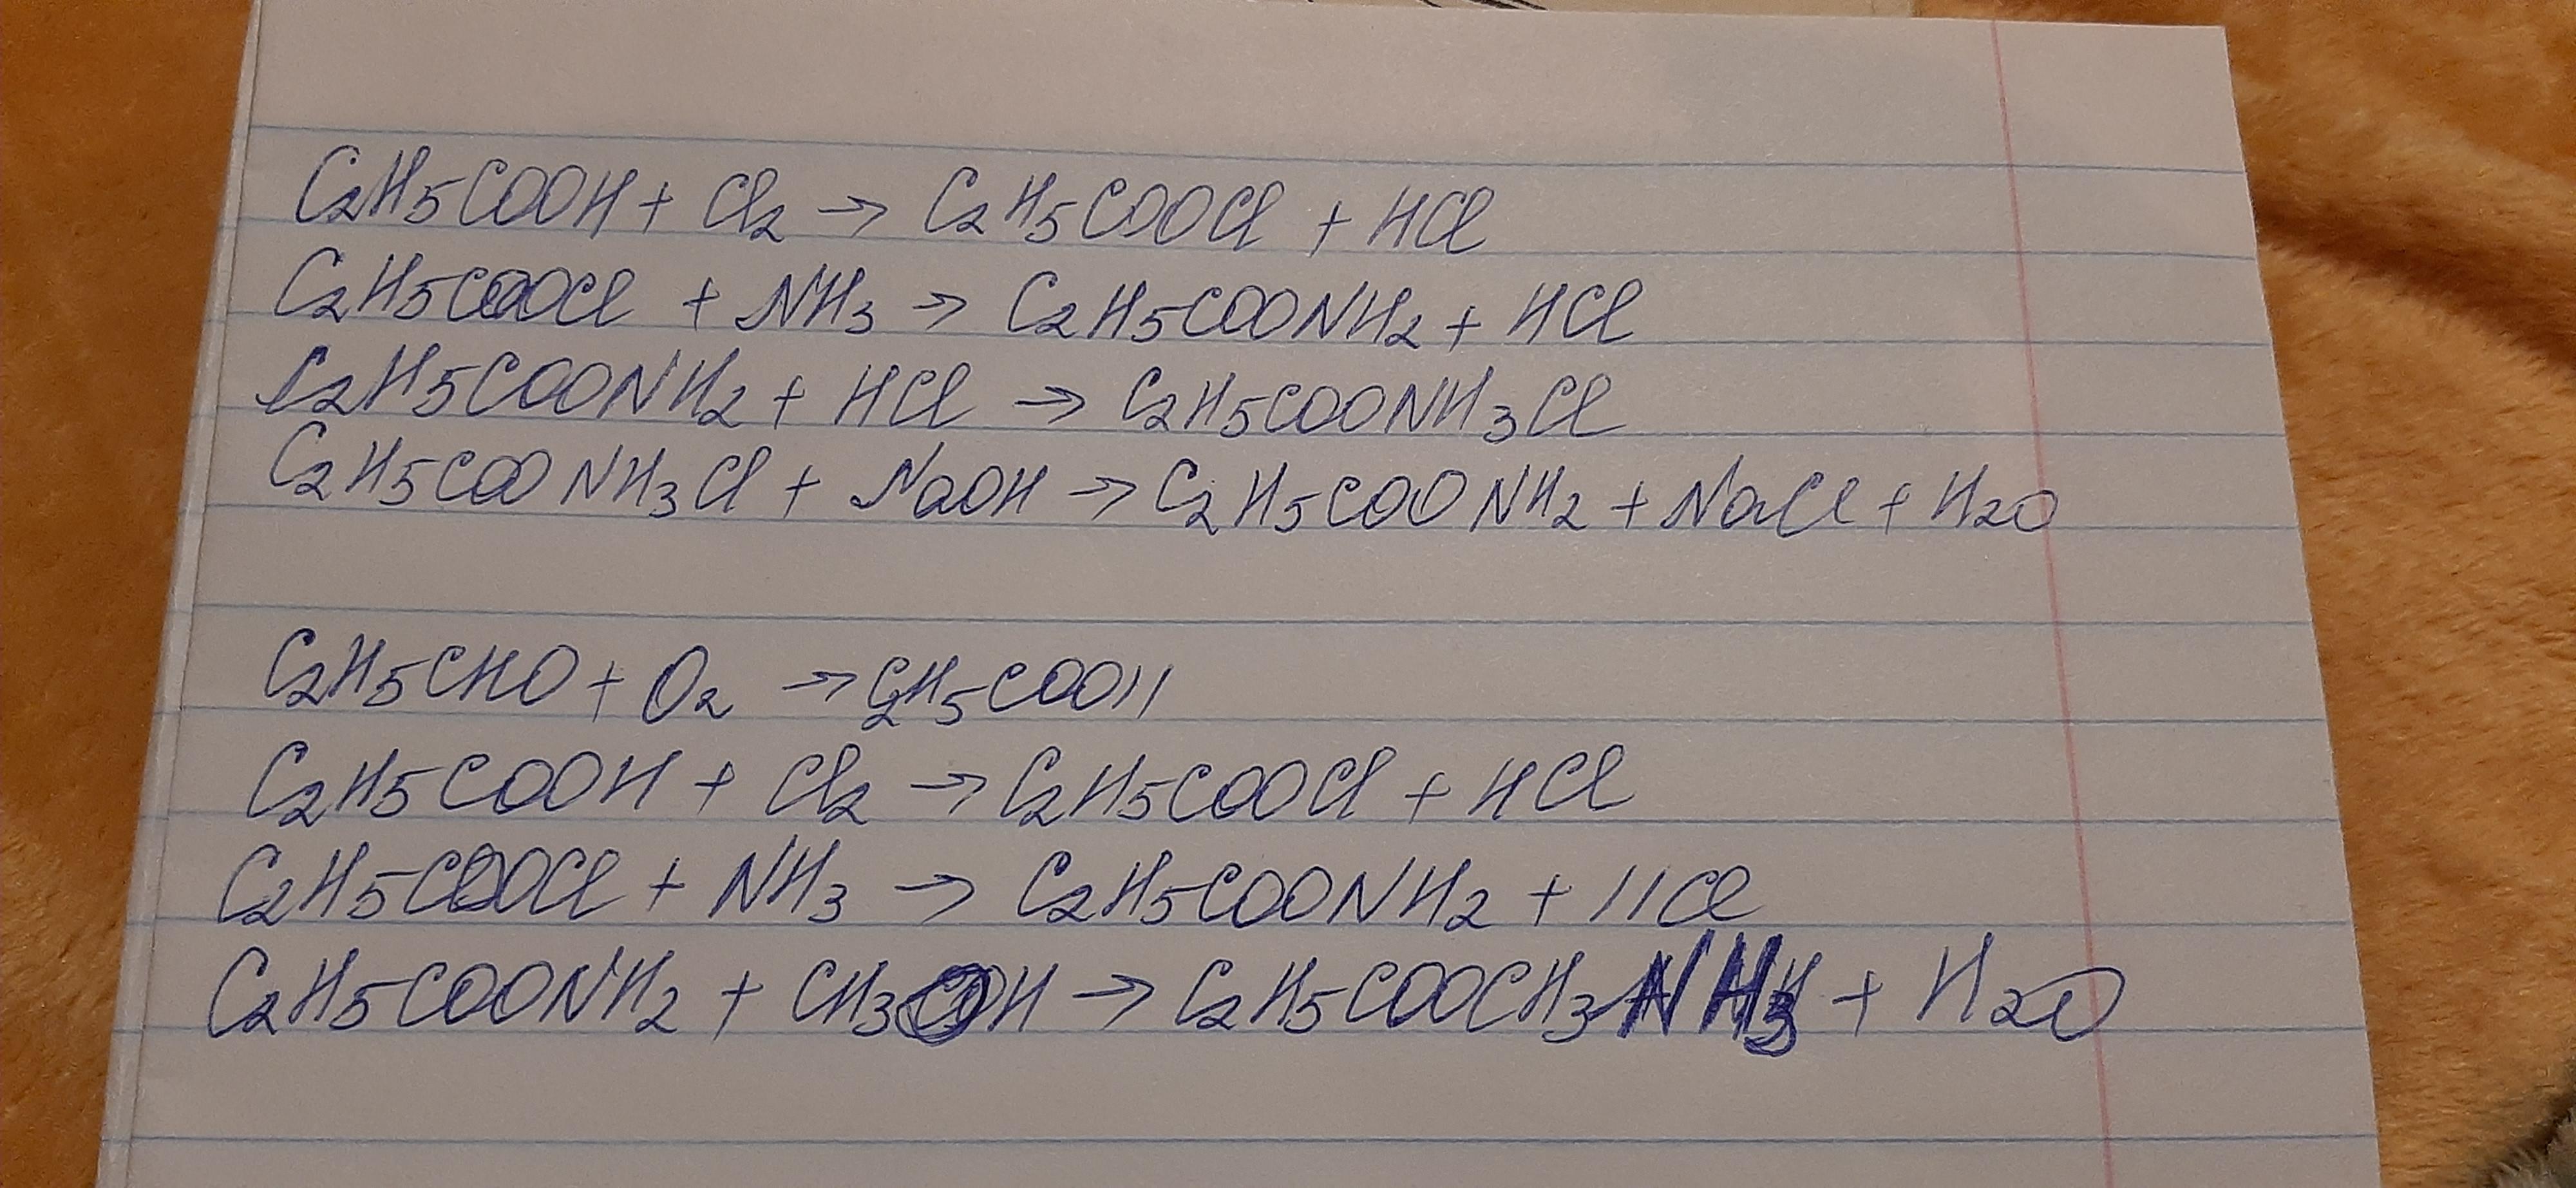 C2H5COOH + Cl2 → C2H5COOCl + HCl
C2H5COOCl + NH3 → C2H5COONH2 + HCl
C2H5COONH2 + HCl → C2H5COONH3Cl
C2H5COONH3Cl + NaOH → C2H5COONH2 + NaCl + H2O
C2H5CHO + O2 → C2H5COOH
C2H5COOH + Cl2 → C2H5COOCl + HCl
C2H5COOCl + NH3 → C2H5COONH2 + HCl
C2H5COONH2 + CH3OH → C2H5COOCH3NH3 + H2O